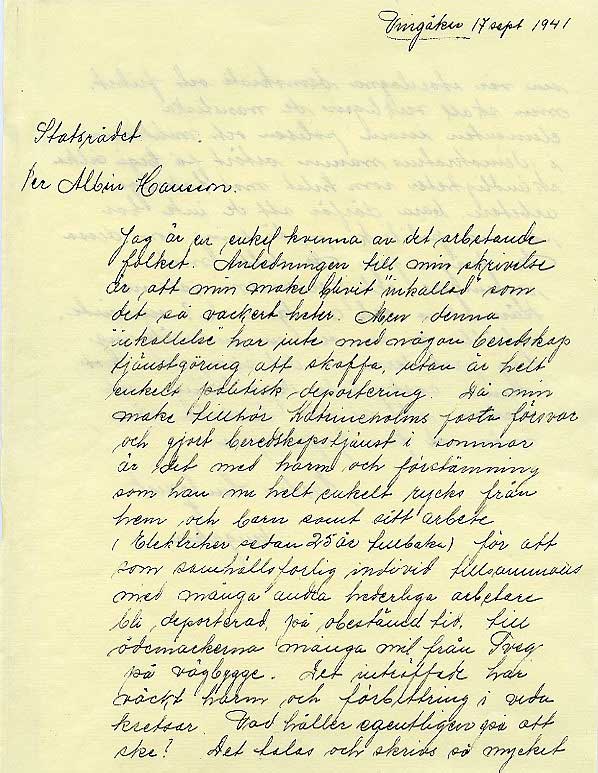 Vingåker 17 sept 1941
Statsrådet
Per Albin Hansson.
Jag är en enkel kvinna av det arbetande
folket. Anledningen till min skrivelse
är, att min make blivit "inkallad" som
det så vackert heter. Men denna
"inkallelse" har inte med någon beredskap
tjänstgöring att skaffa, utan är helt
enkelt politisk deportering. Då min
make tillhör Katrineholms fasta försvar
och gjort beredskapstjänst i sommar
är det med harm och förstämning
som han nu helt enkelt rycks från
hem och barn samt sitt arbete
(Elektriker sedan 25 år tillbaka) för att
som samhällsfarlig individ tillsammans
med många andra hederliga arbetare
bli deporterad, på obestämd tid, till
ödemarkerna många mil från Sveg
på vägbygge. Det inträffade har
väckt harm och förbittring i vida
kretsar. Vad håller egentligen på att
ske? Det talas och skrivs så mycket